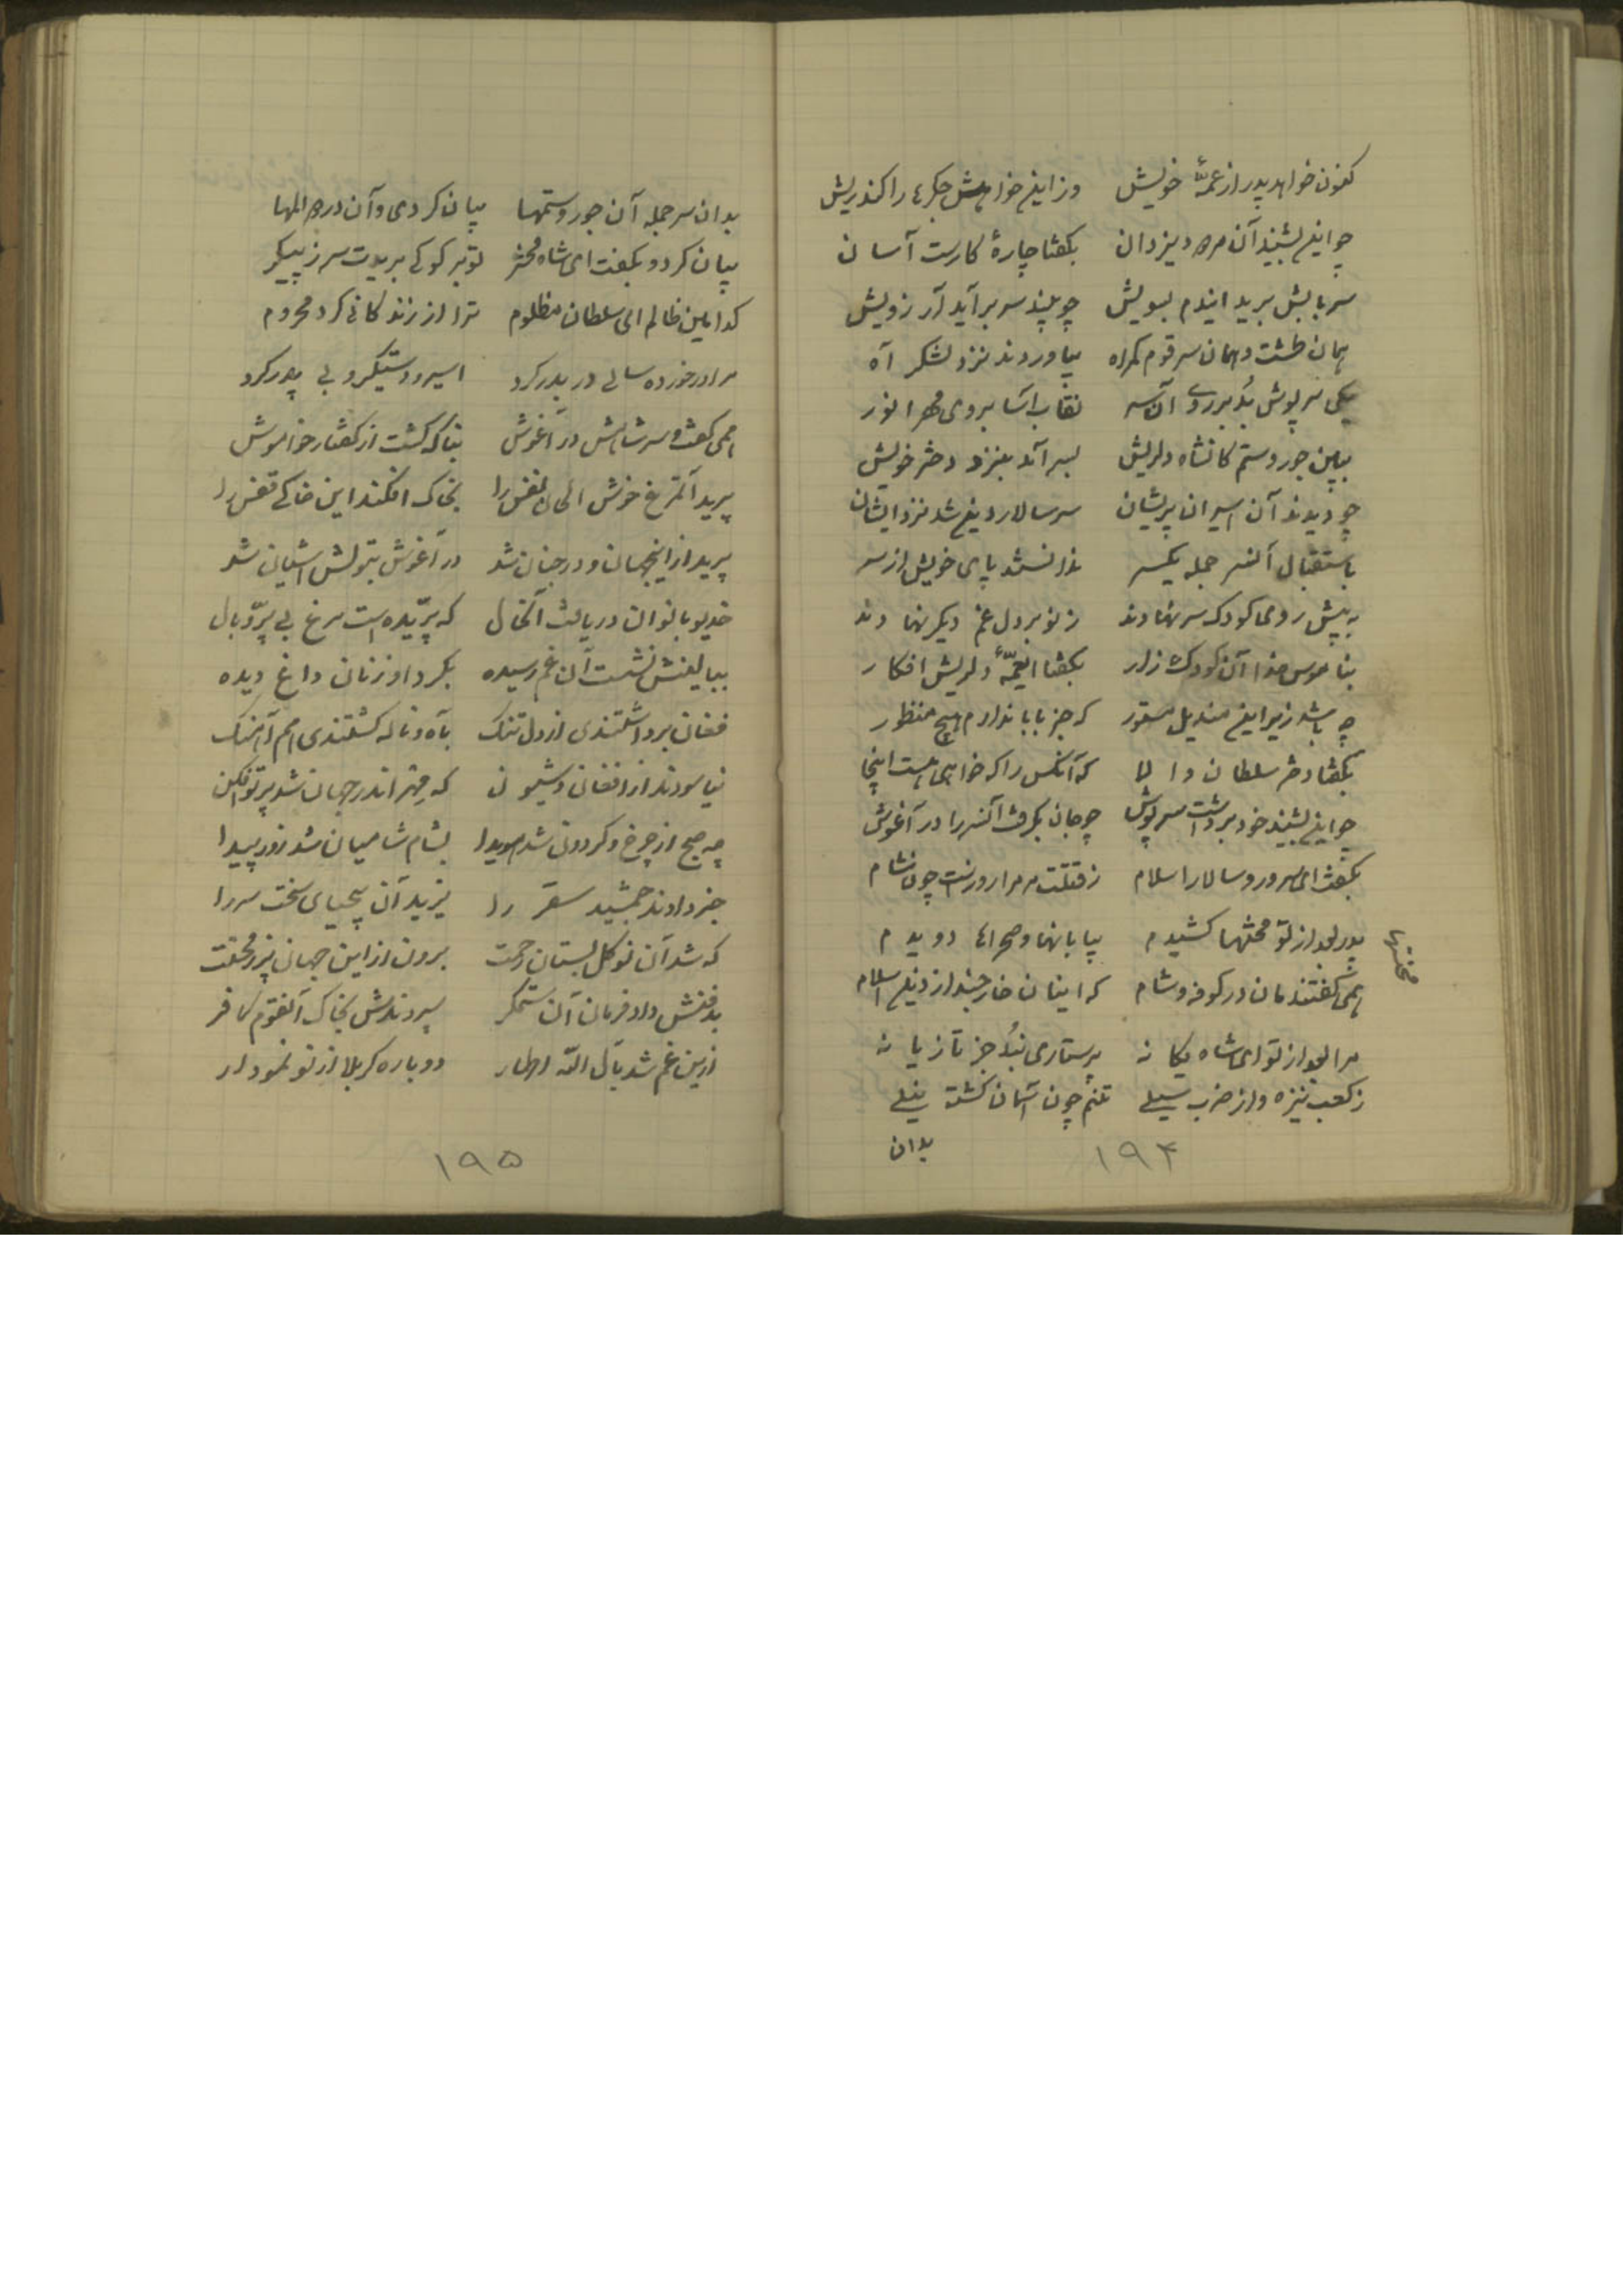 کنون خواهد پدر از عمّهٔ خویش وز این خواهش جگرها را کند ریش
چو این بشنید آن مردود یزدان بگفتا چارهٔ کارست آسان
سر بابش برید ایندم بسویش چو بیند سر برآید آرزویش
همان طشت و همان سر قوم گمراه بیاوردند نزد لشکر آه
یکی سرپوش بُد بر روی آن سر نقاب آسا بروی مهر انور
ببین جور و ستم کانشاه دلریش بسر آمد بنزد دختر خویش
چو دیدند آن اسیران پریشان سر سالار دین شد نزد ایشان
باستقبال آنسر جمله یکسر ندانستند پای خویش از سر
به پیش روی کودک سر نهادند ز نو بر دل غم دیگر نهادند
بناموس خدا آن کودک زار بگفتا ایعمّهٔ دلریش افکار
چه باشد زیر این مندیل مستور که جز بابا ندارم هیچ منظور
بگفتا دختر سلطان والا که آنکس را که خواهی هست اینجا
چو این بشنید خود برداشت سرپوش چو جان بگرفت آنسر را در آغوش
بگفت ای سرور و سالار اسلام ز قتلت مر مرا روز است چون شام
پدر بعد از تو محنتها کشیدم بیابانها و صحراها دویدم
محنتها
همی گفتندمان در کوفه و شام که اینان خارجند از دین اسلام
مرا بعد از تو ای شاه یگانه پرستاری نبُد جز تازیانه
ز کعب نیزه و از ضرب سیلی تنم چون آسمان گشته نیلی
بدان
۱۹۴
بدان سر جمله آن جور و ستمها بیان کردی و آن درد المها
بیان کرد و بگفت ای شاه محشر تو بر گو کی بریدت سر ز پیکر
کدامین ظالم ای سلطان مظلوم ترا از زندگانی کرد محروم
مرا در خورده سالی در بدر کرد اسیر و دستگیر و بی پدر کرد
همی گفت و سر شاهش در آغوش بناگه گشت از گفتار خاموش
پرید آنمرغ خوش الحان نفس را بخاک افکند این خاکی قفس را
پرید از اینجهان و در جنان شد در آغوش بتولش آشیان شد
خدیو بانوان دریافت آنحال که پرّیده است مرغ بی پرّ و بال
ببالینش نشست آن غم رسیده بگرد او زنان داغ دیده
فغان برداشتندی از دل تنگ بآه و ناله گشتندی هم آهنگ
نیاسودند از افغان و شیون که مهر اندر جهان شد پرتوافکن
چه صبح از چرخ و گردون شد هویدا بشام شامیان شد روز پیدا
خبر دادند جمشید سقر را یزید آن بیحیای سخت سر را
که شد آن نوگل بستان رحمت برون از این جهان پر ز محنت
بدفنش داد فرمان آن ستمگر سپردندش بخاک آنقوم کافر
ازین غم شد بآل اللّه اطهار دوباره کربلا از نو نمودار
۱۹۵